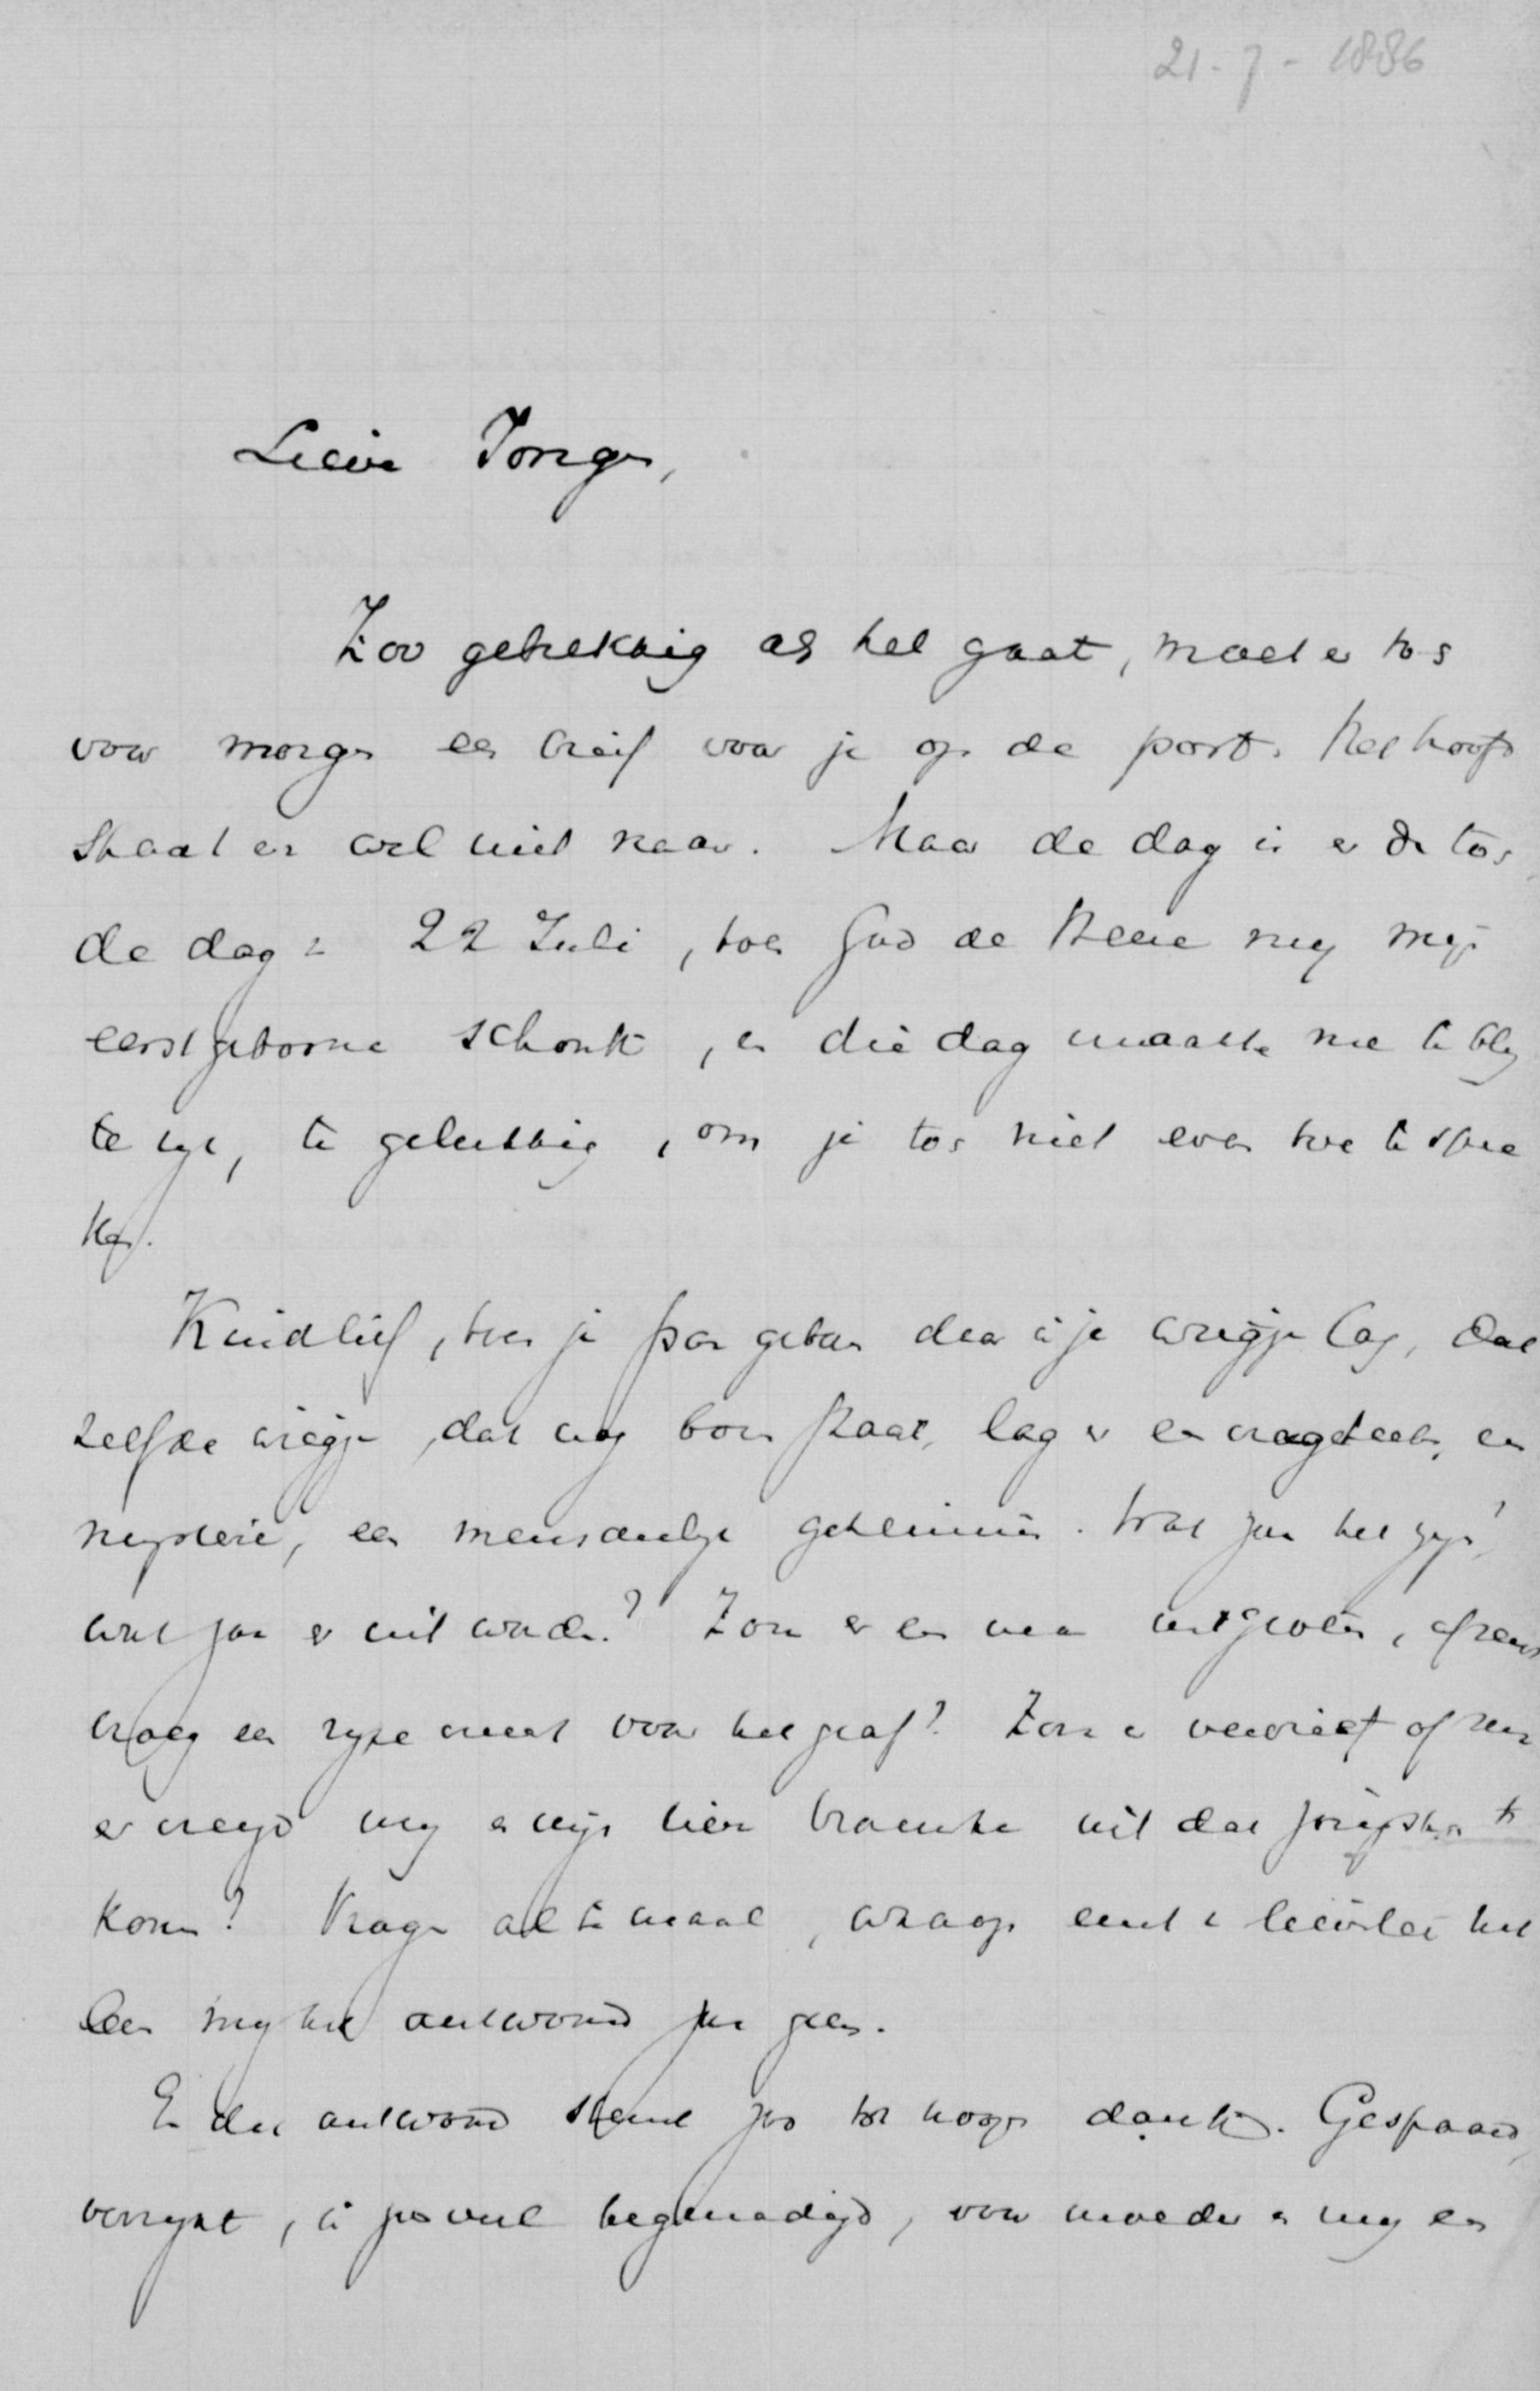 21-7-1886
Lieve Jongen,
Zoo gebrekkig als het gaat, moet er tos
voor morgen een brief voor je op de post. Het hoofd
staat er wel niet naar. Maar de dag is er dr tos,
de dag v 22 Juli, toen God de Heere my mijn
eerstgeborne schonk, en die dag maakte me te bly
te , te gelukkig, om je tos niet even toe te spre
ken.
Kindlief, toen je pas geboren daar in je wiegje lag, dat
zelfde wiegje, dat nog boven staat, lag er een vraagteeken, een
mysterie, een menschelyk geheimenis. Wat zou het zyn?
wat zou er uit worden? Zou er een man uitgroeien, of reeds
vroeg een rype vracht voor het graf? Zou er verdriet of zou
er vreugd my en mijn lieve vrouwke uit dat jongske toe
komen? Vragen altemaal, waarop eerst 't
leven my het antwoord zou geven.
En dat antwoord stemt zoo tot hoogen dank. Gespaard,
verrykt, in zooveel begenadigd, voor moeder en my een